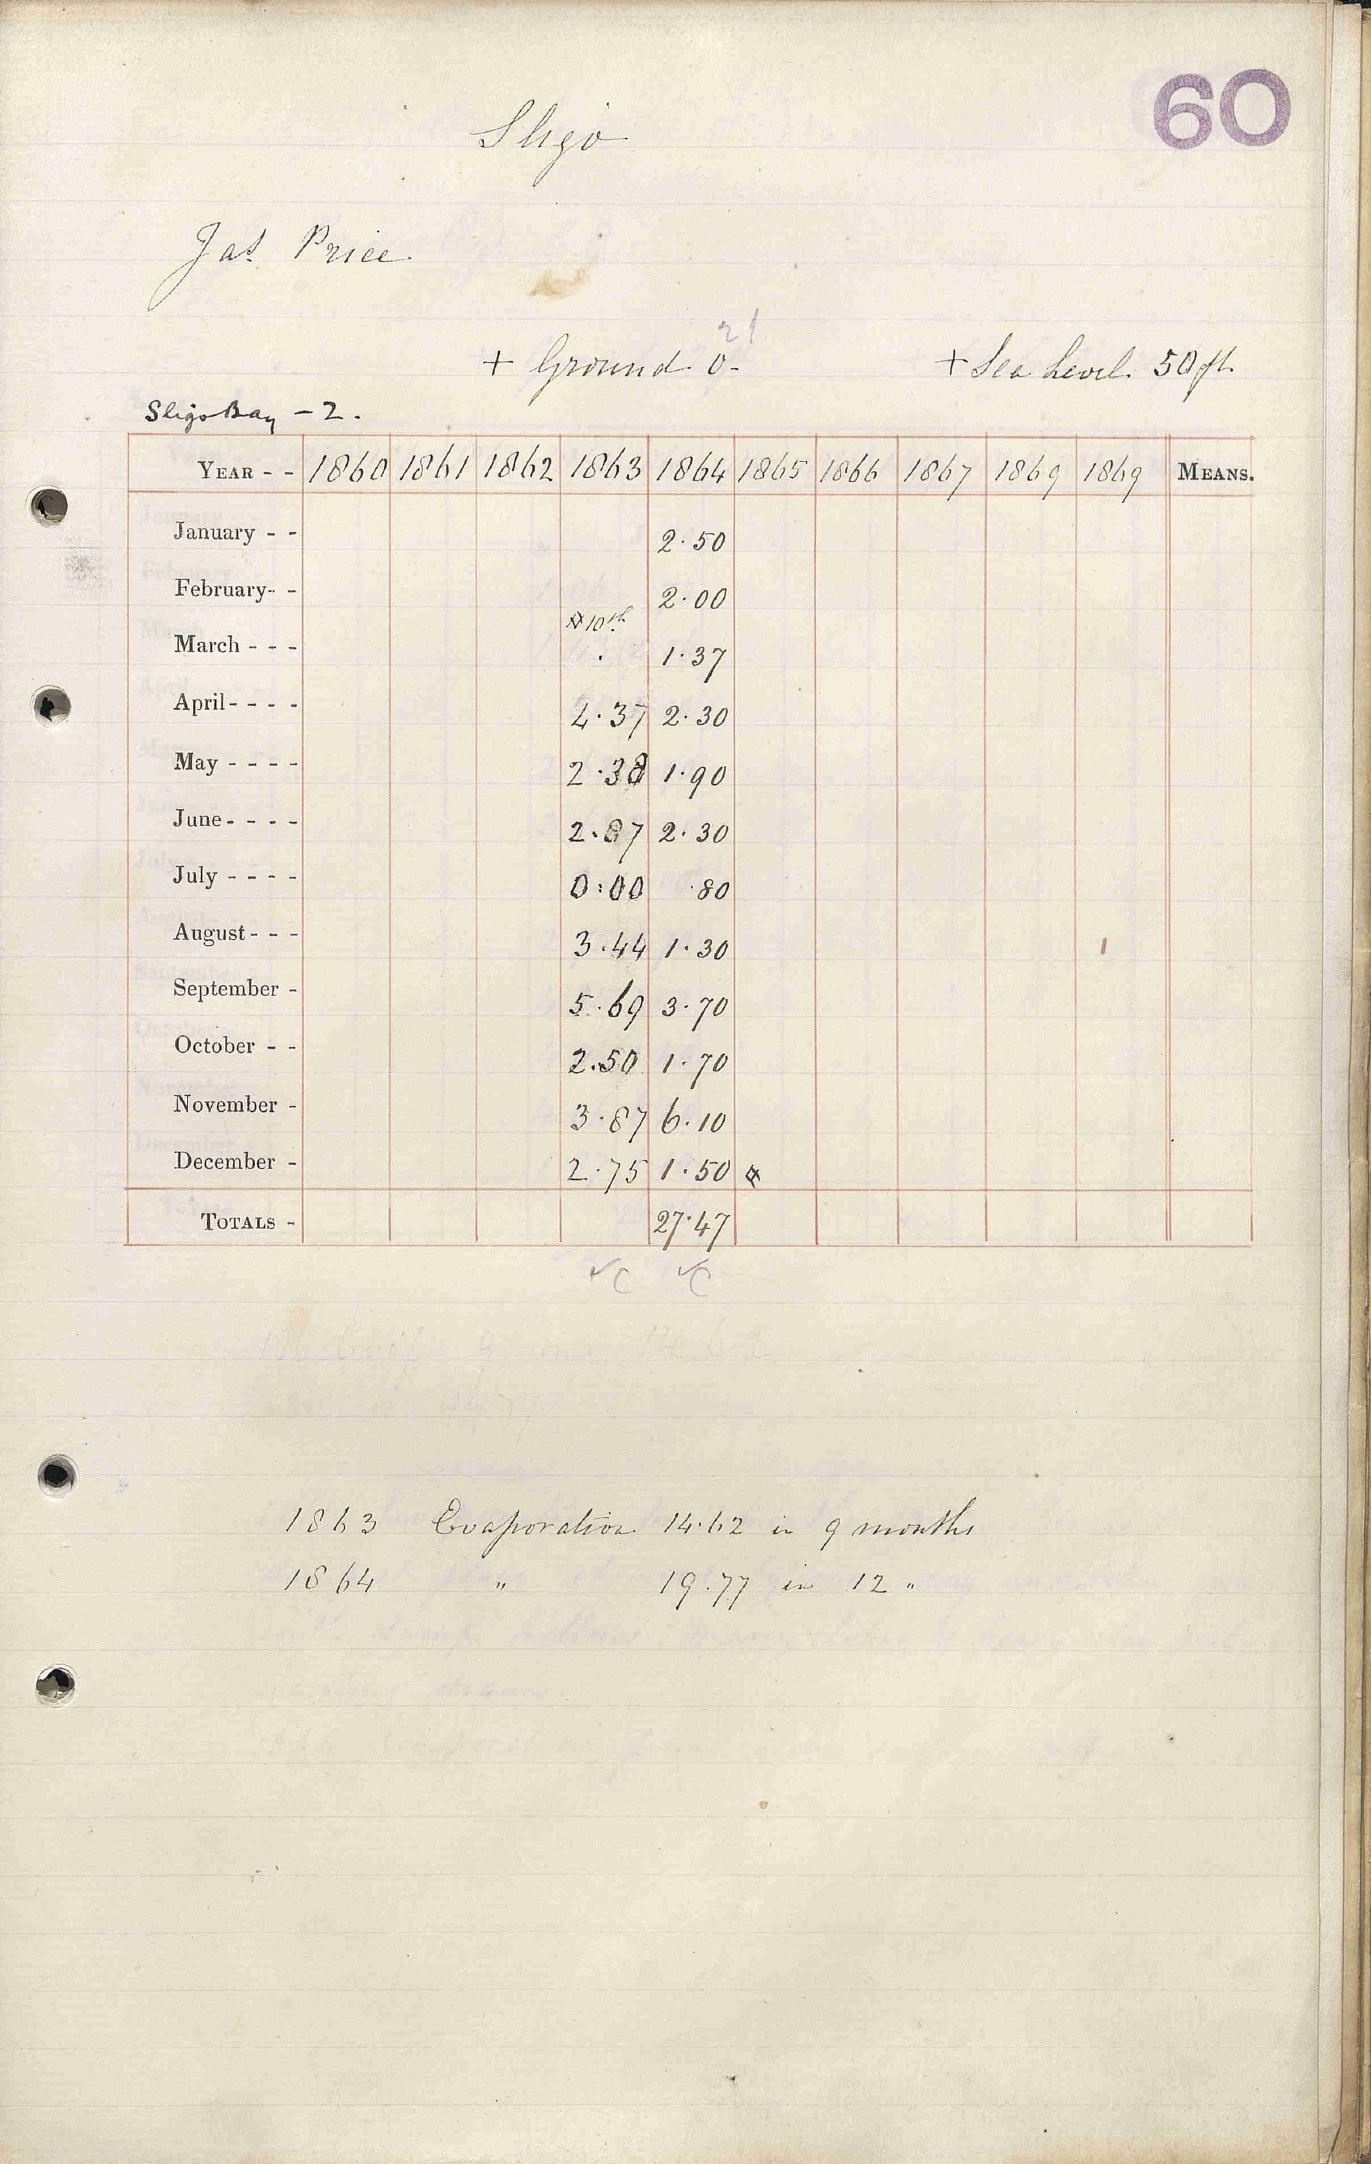 60
Sligo
Jas Price
21
+ Ground 0- + Sea Level 50 ft
Sligo Bay - 2.
YEAR - - 1860 1861 1862 1863 1864 1865 1866 1867 1869 1869 MEANS.
January - - 2.50
February- - 2.00
☆10th
March - - - . 1.37
April- - - - 4.37 2.30
May - - - - 2.38 1.90
June- - - - 2.87 2.30
July - - - - 0.00 .80
August- - - 3.44 1.30
September - 5.69 3.70
October - - 2.50 1.70
November - 3.87 6.10
December - 2.75 1.50 ☆
TOTALS - 27.47
✓C ✓C
1863 Evaporation 14.62 in 9 months
1864 " 19.77 in 12 "